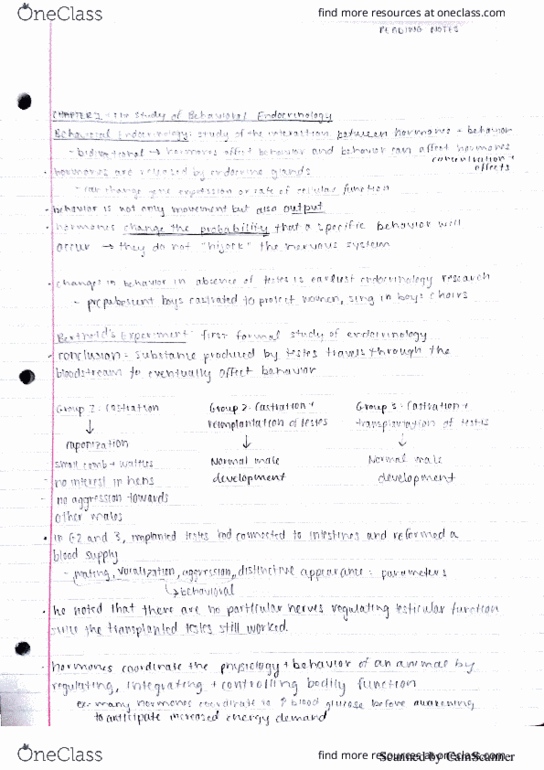 OneClass
find more resources at oneclass.com
READING NOTES
CHAPTER 1: The Study of Behavioral Endocrinology
Behavioral Endocrinology: study of the interaction between hormones + behavior
- bidirectional → hormones affect behavior and behavior can affect hormones
concentration + effects
· hormones are released by endocrine glands
- can change gene expression or rate of cellular function
· behavior is not only movement but also output
· hormones change the probability that a specific behavior will
occur → they do not "hijack" the nervous system
· changes in behavior in absence of testes is earliest endocrinology research
- prepubescent boys castrated to protect women, sing in boys choirs
Berthold's Experiment: first formal study of endocrinology
- conclusion: substance produced by testes travels through the
bloodstream to eventually affect behavior
Group 1: Castration
Group 2: Castration +
reimplantation of testes
Group 3: Castration +
transplantation of testis
↓ ↓ ↓
caponization
small comb + wattles
- no interest in hens
- no aggression towards
other males
Normal male
development
Normal male
development
· in G2 and 3, implanted testes had connected to intestines and reformed a
blood supply
- mating, vocalization, aggression, distinctive appearance: parameters
↳ behavioral
· he noted that there are no particular nerves regulating testicular function
the transplanted testes still worked.
· hormones coordinate the physiology + behavior of an animal by
regulating, integrating + controlling bodily function
ex: many hormones coordinate to ↑ blood glucose before awakening
to anticipate increased energy demand
OneClass
find more resources at oneclass.com
Scanned by CamScanner